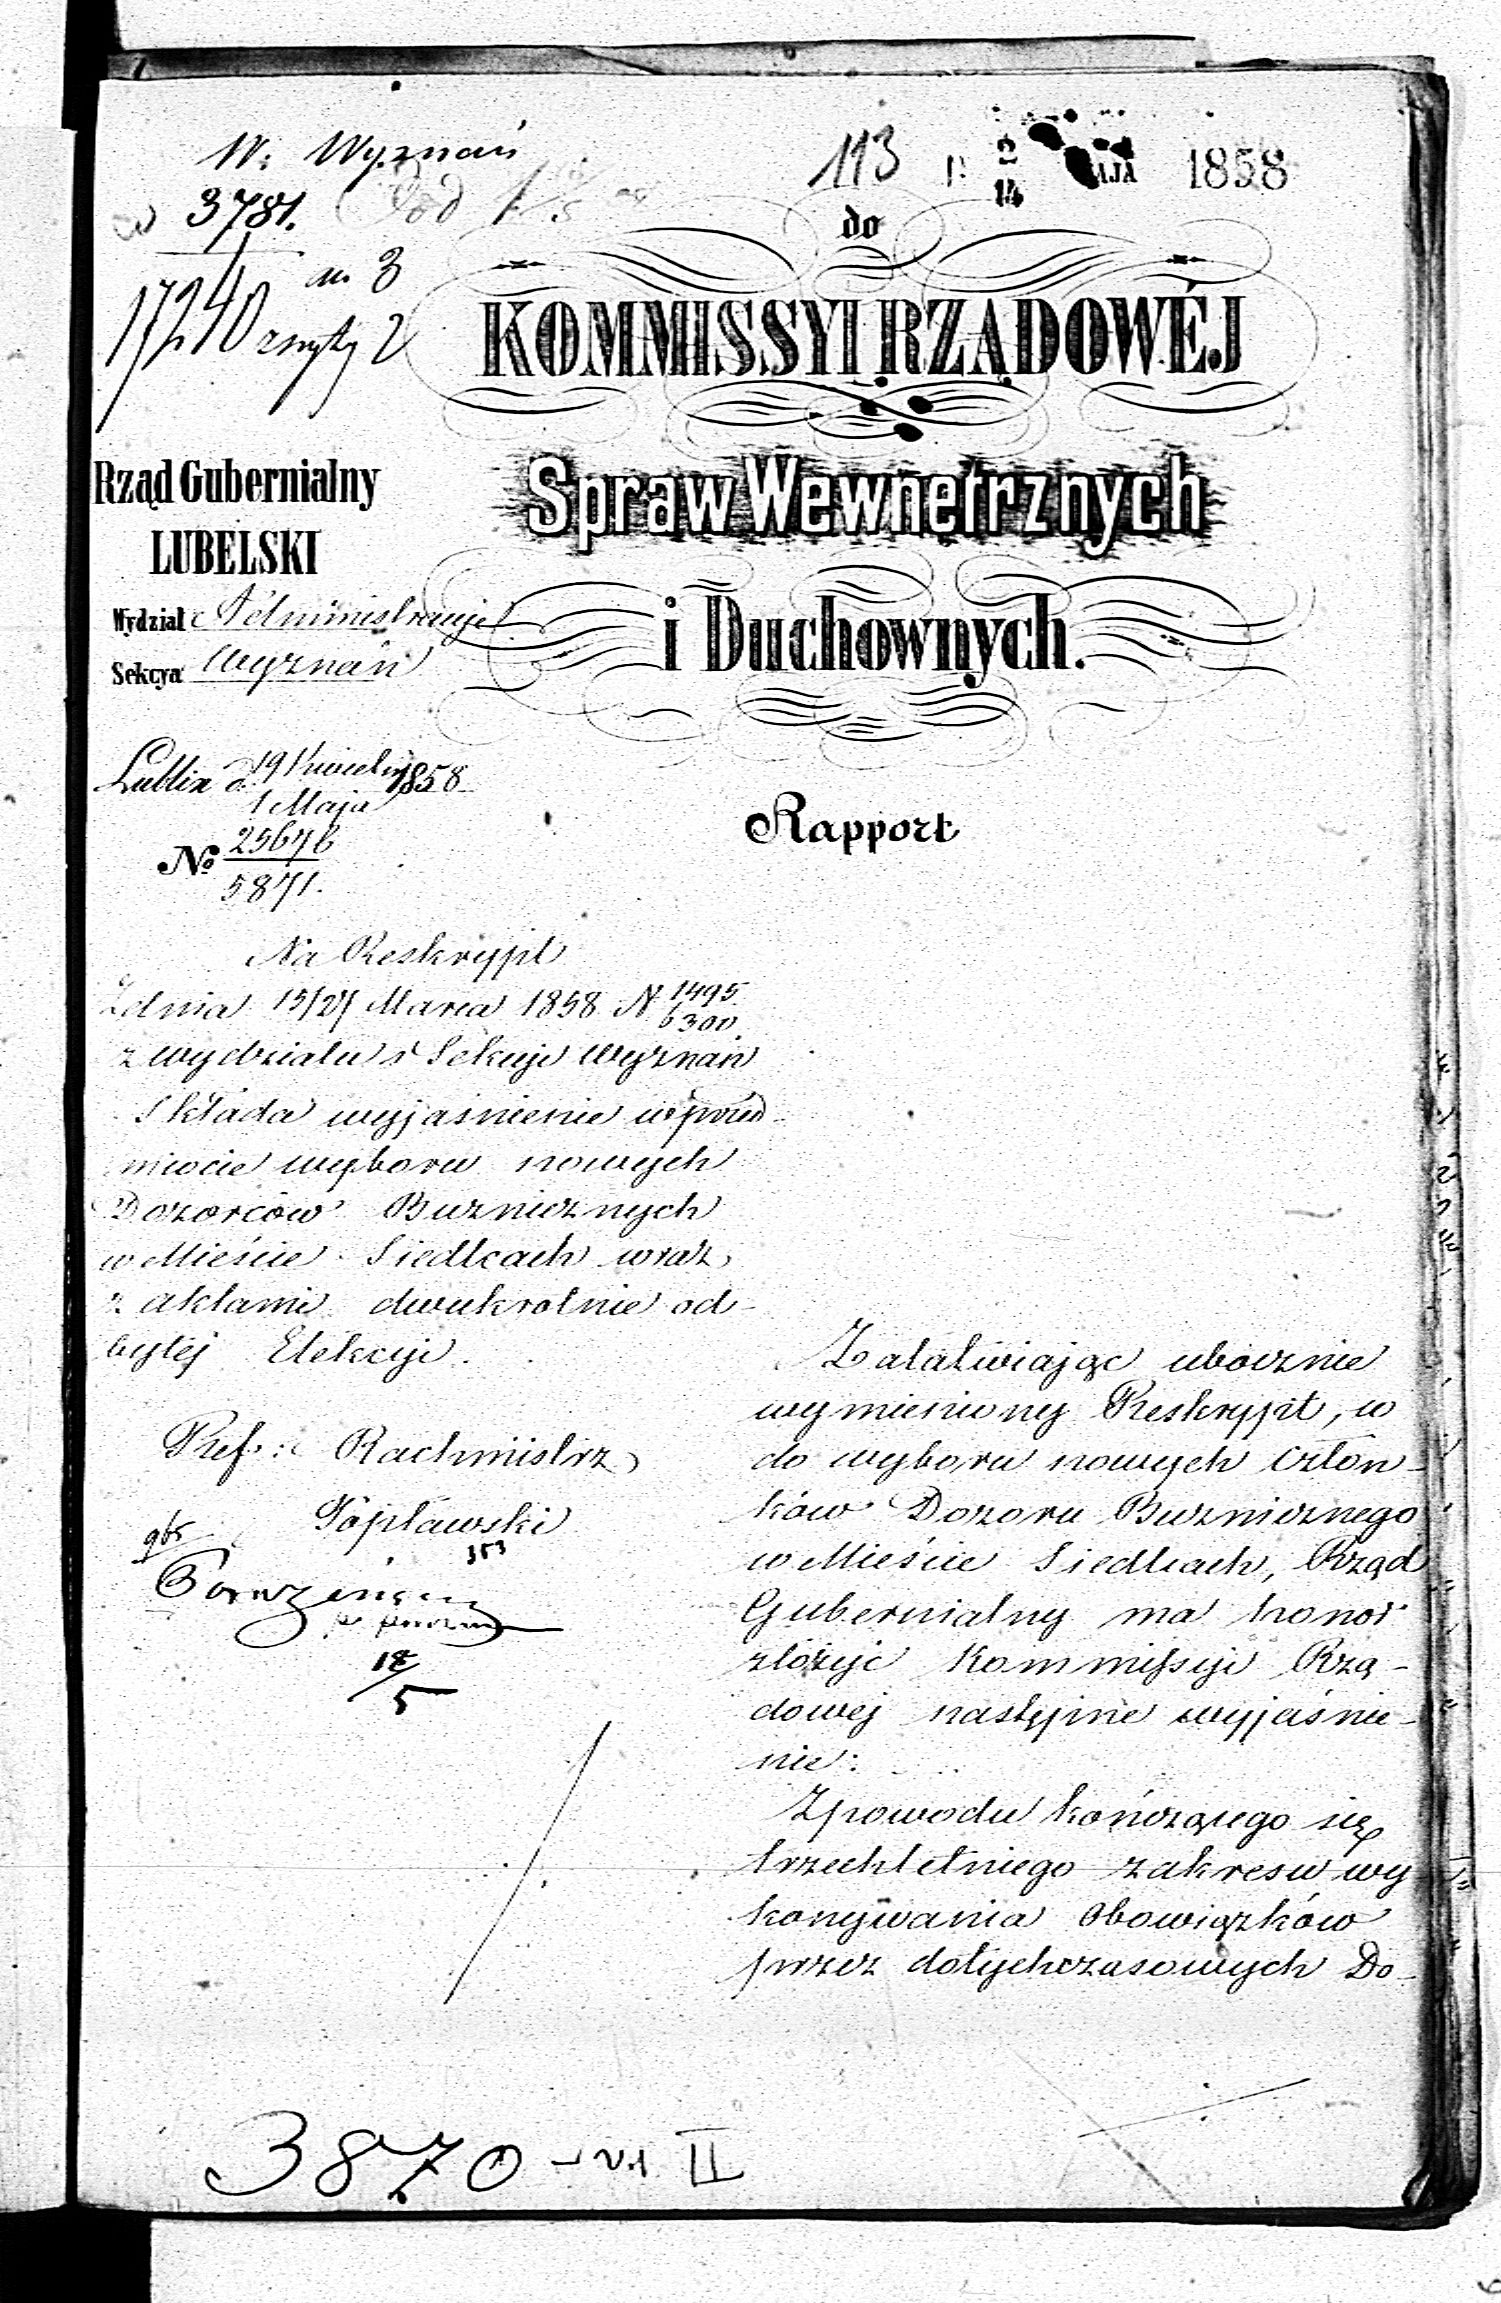 W. Wyznań
3781.
17240
113
2
14
MAJA 1858
do
KOMMISSYI RZĄDOWÉJ
Spraw Wewnętrznych
i Duchownych.
Rząd Gubernialny
LUBELSKI
Wydział Administracyi
Sekcya Wyznań
Lublin d. 19 Kwietnia 1858
1 Maja
No 25676
5871.
Rapport
Na Reskrypt
Zdnia 15/27 Marca 1858 N 1495
6300
z wydziału i Sekcyi Wyznań
składa wyjaśnienie w przed
miocie wyboru nowych
Dozorców Bużnicznych
w Mieście Siedlcach wraz
z aktami dwukrotnie od-
bytéj Elekcyi.
Ref: Rachmistrz
Popławski
353
18/5
Załatwiając ubocznie
wymieniony Reskrypt, w
do wyboru nowych człon-
ków Dozoru Bużnicznego
w Mieście Siedlcach, Rząd
Gubernialny ma honor
złożyć Kommissyi Rzą-
dowej następne wyjaśnie-
nie:
Zpowodu kończącego się
trzechletniego zakresu wy
konywania Obowiązków
przez dotychczasowych Do-
3870